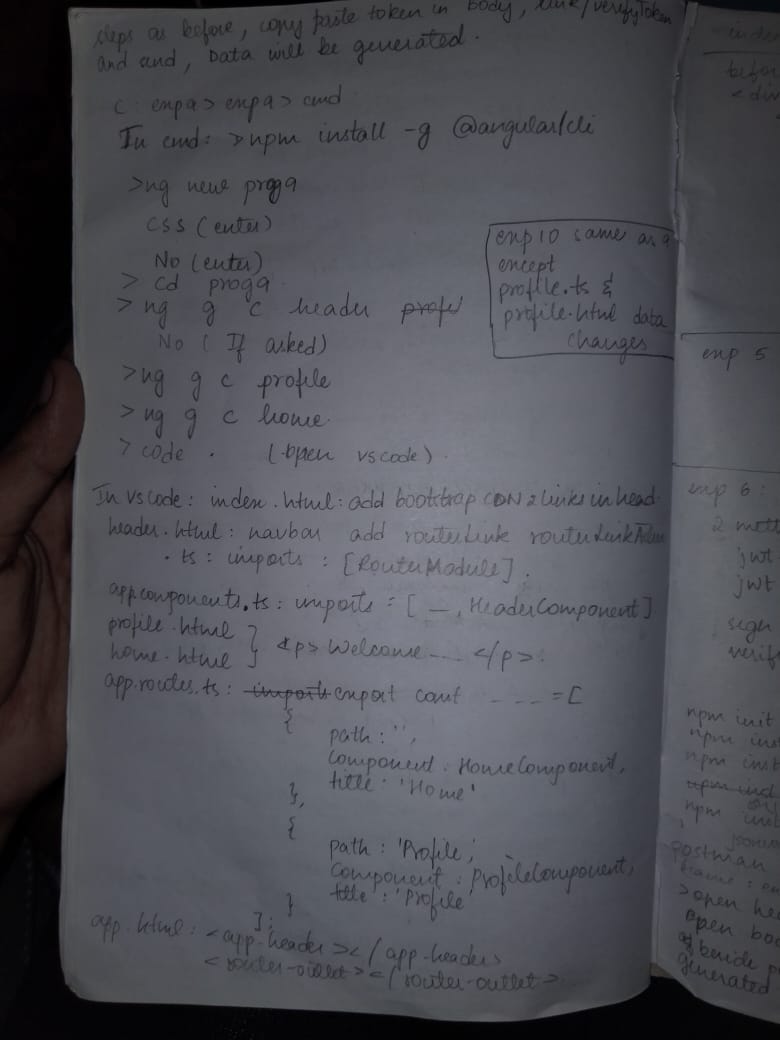 steps as before, copy paste token in body, link/verifyToken
and send, Data will be generated.
C: exp9> exp9> cmd
In cmd: >npm install -g @angular/cli
>ng new prog9
CSS (enter)
No (enter)
> cd prog9
> ng g c header
No (If asked)
>ng g c profile
>ng g c home
> code . (open vscode).
exp10 same as 9
except
profile.ts &
profile.html data
changes
In vscode: index.html: add bootstrap CDN 2 links in head
header.html: navbar add routerLink routerLinkActive
.ts: imports : [RouterModule].
app.components.ts: imports = [ _, HeaderComponent]
profile.html
home.html } <p> Welcome --- </p>.
app.routes.ts: export const ---- = [
{
path : '',
component : HomeComponent,
title : 'Home'
},
{
path : 'Profile,
Component : ProfileComponent,
title : 'Profile'
}
];
app.html: <app-header></app-header>
<router-outlet></router-outlet>
<div
exp 5
exp 6 :
jwt
jwt
npm init
npm inst
npm inst
npm inst
postman
>open hea
open bod
generated